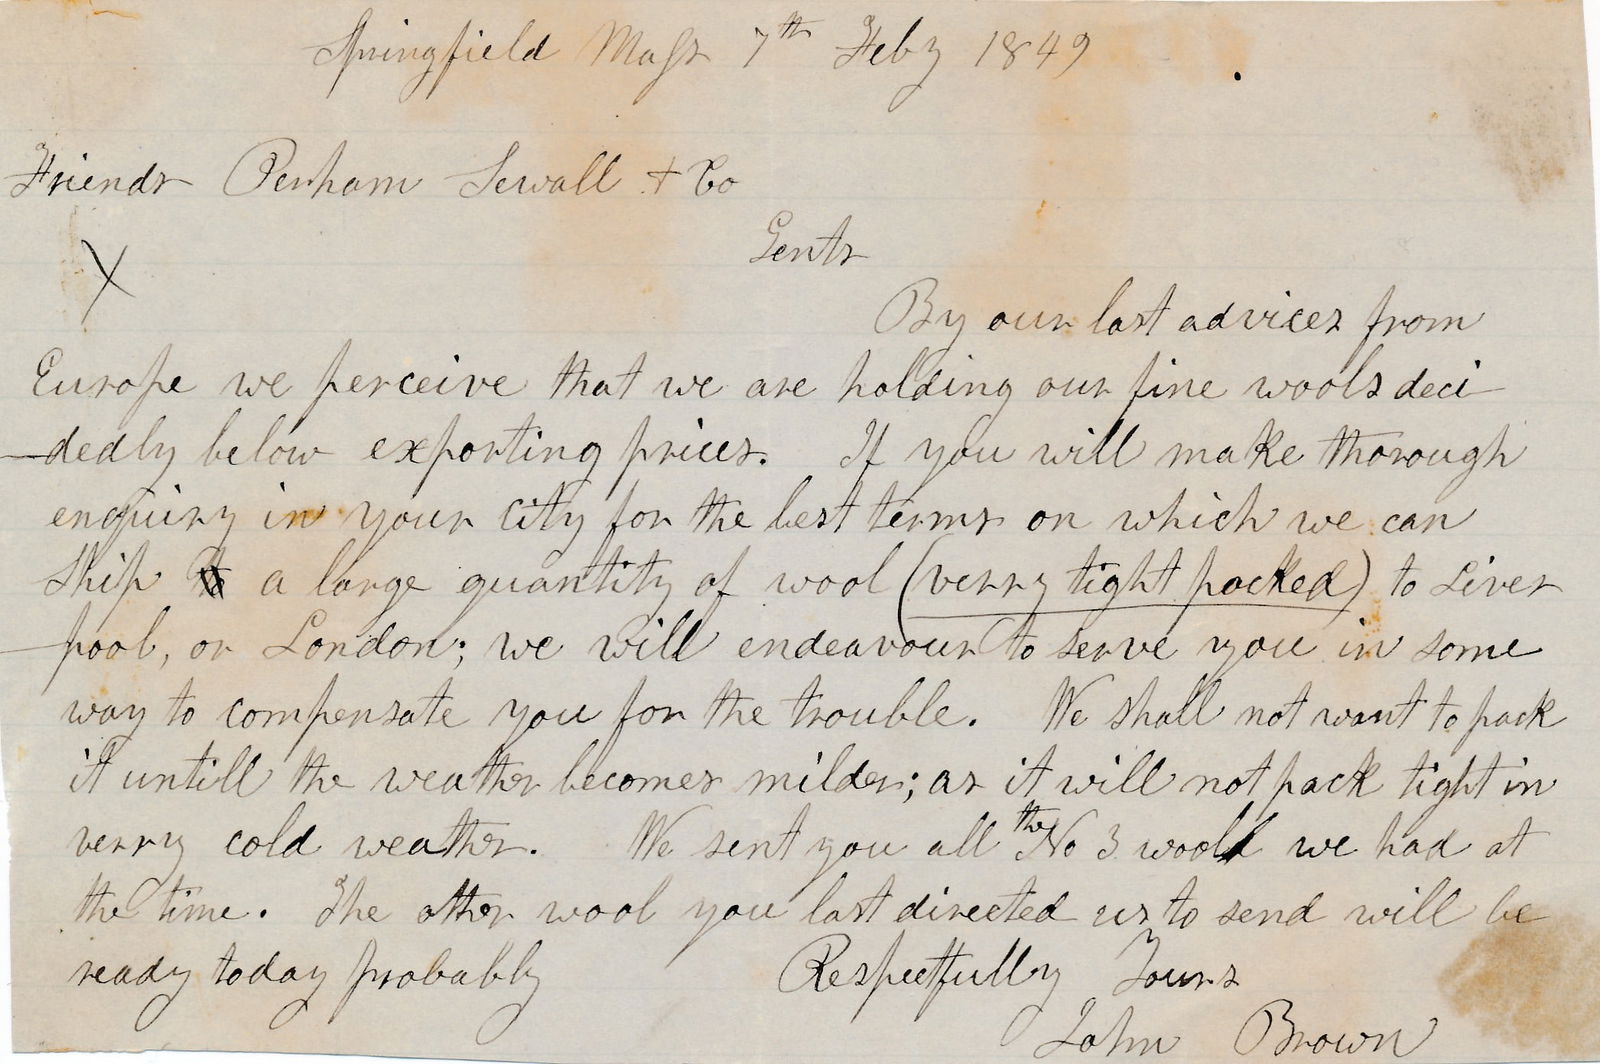 Springfield Mass 7th Feby 1849
Friends Perham Sewall + Co
Gents
X
By our last advices from
Europe we perceive that we are holding our fine wools deci-
-dedly below exporting prices. If you will make thorough
enquiry in your city for the best terms on which we can
ship a large quantity of wool (verry tight packed) to Liver
-pool, or London; we will endeavour to serve you in some
way to compensate you for the trouble. We shall not want to pack
it untill the weather becomes milder; as it will not pack tight in
verry cold weather. We sent you all the No 3 wool we had at
the time. The other wool you last directed us to send will be
ready today probably Respectfully Yours
John Brown